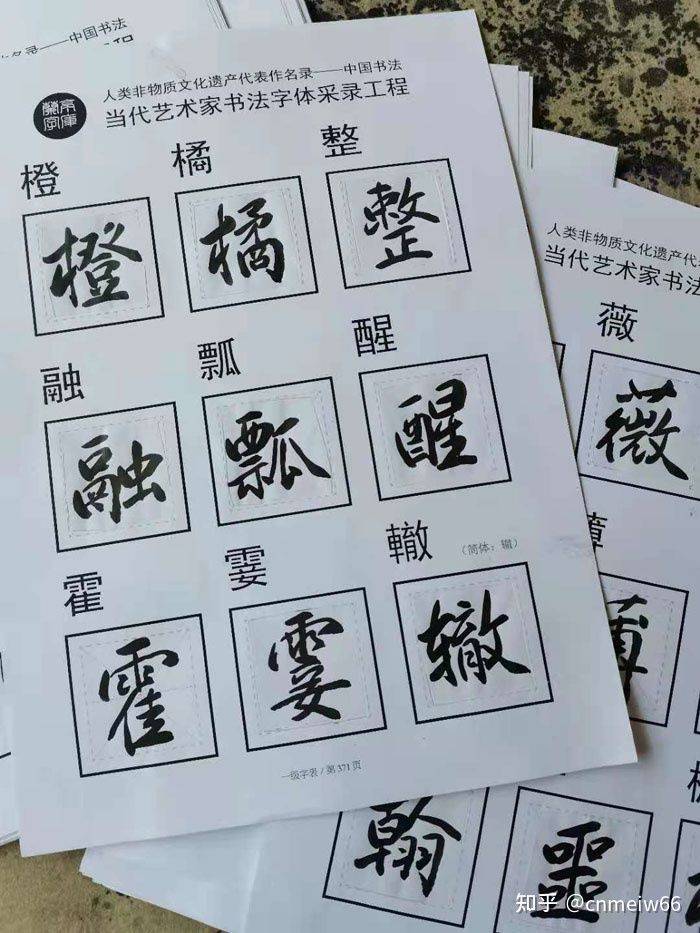 名录——中国书法
蘭亭
字庫
人类非物质文化遗产代表作名录——中国书法
当代艺术家书法字体采录工程
橙 橘 整
橙 橘 整
融 瓢 醒
融 瓢 醒
霍 霎 轍 （简体：辙）
霍 霎 轍
一级字表 / 第 371 页
人类非物质文化遗产代
当代艺术家书法
薇
薇
翰 噩
知乎 @cnmeiw66